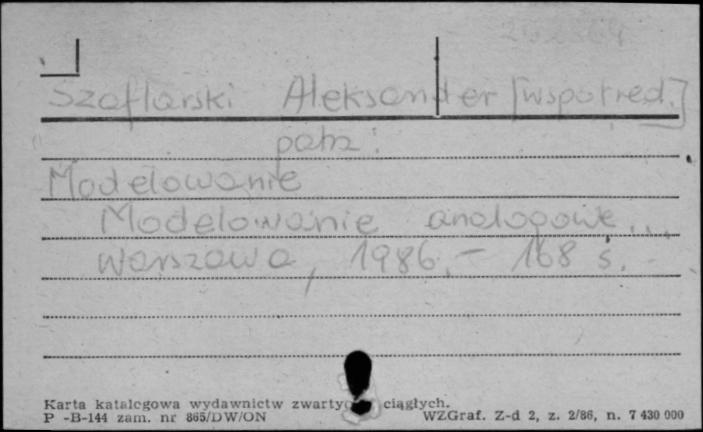 Szaflarski Aleksander [współred.]
patrz:
Modelowanie
Modelowanie analogowe...
Warszawa, 1986.- 168 s.
Karta katalogowa wydawnictw zwartych ciągłych.
P -B-144 zam. nr 865/DW/ON WZGraf. Z-d 2, z. 2/86, n. 7 430 000